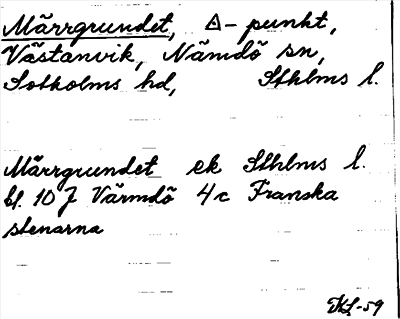 Märrgrundet, △-punkt,
Västanvik, Nämdö sn,
Sotholms hd, Sthlms l.
Märrgrundet ek Sthlms l.
bl. 10 J Värmdö 4c Franska
stenarna